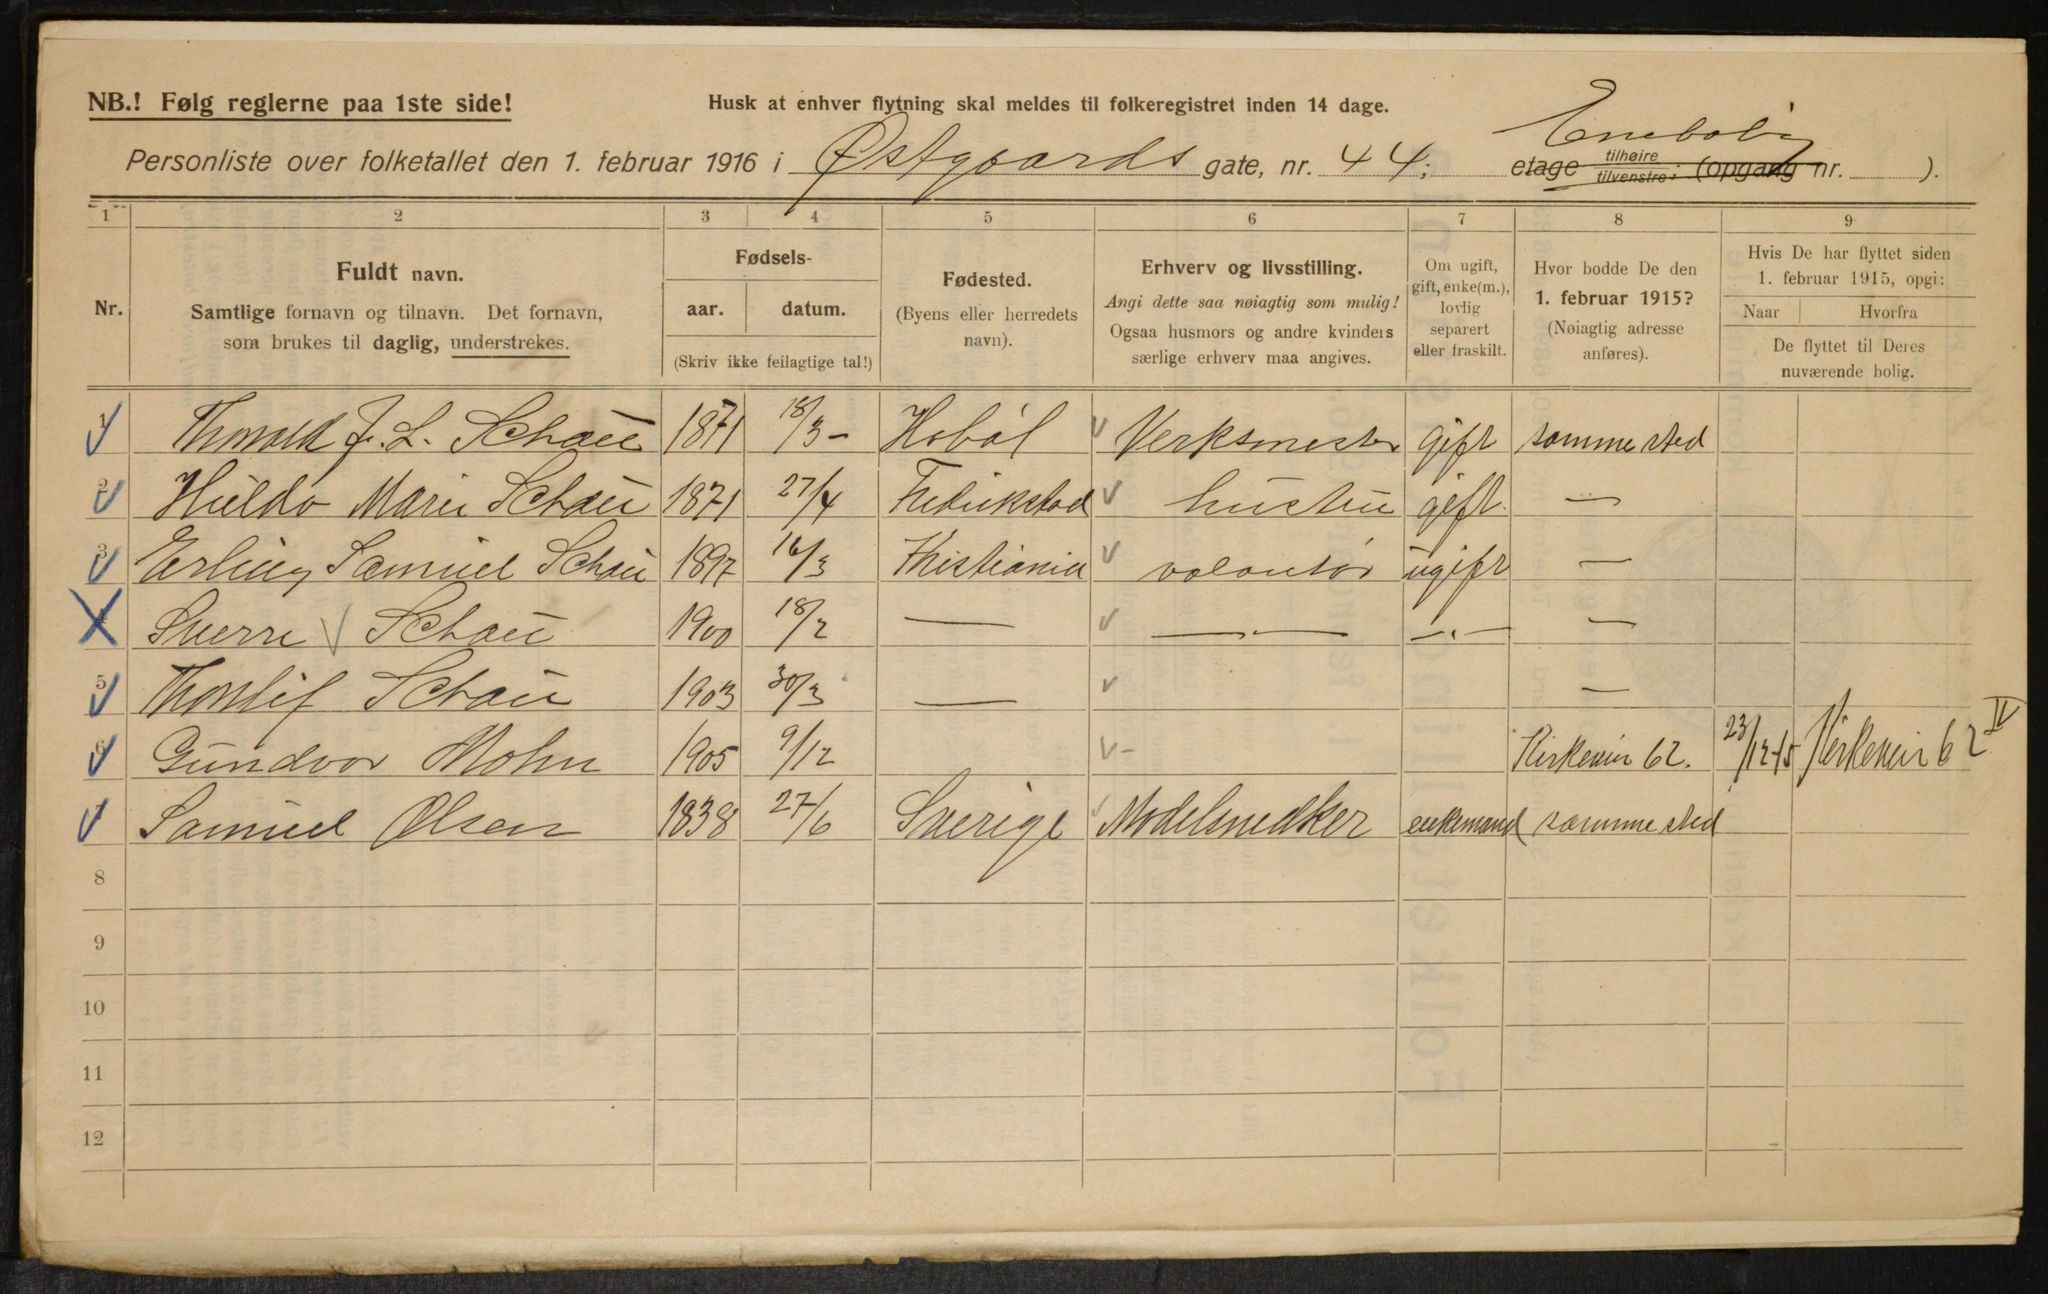 NB.! Følg reglerne paa 1ste side!
Husk at enhver flytning skal meldes til folkeregistret inden 14 dage.
Personliste over folketallet den 1. februar 1916 i Østgaards gate, nr. 44; Enebolig etage tilhøire tilvenstre: (opgang nr. ).
1 2 3 4 5 6 7 8 9
Nr.
Fuldt navn.
Samtlige fornavn og tilnavn. Det fornavn,
som brukes til daglig, understrekes.
Fødsels-
aar. datum.
(Skriv ikke feilagtige tal!)
Fødested.
(Byens eller herredets
navn).
Erhverv og livsstilling.
Angi dette saa nøiagtig som mulig!
Ogsaa husmors og andre kvinders
særlige erhverv maa angives.
Om ugift,
gift, enke(m.),
lovlig
separert
eller fraskilt.
Hvor bodde De den
1. februar 1915?
(Nøiagtig adresse
anføres).
Hvis De har flyttet siden
1. februar 1915, opgi:
Naar Hvorfra
De flyttet til Deres
nuværende bolig.
1 Thorvald F. L. Schau 1871 18/3 - Hobøl Verksmester gift sammested
2 Hilda Marie Schau 1871 27/4 Fredrikstad hustru gift. —
3 Erling Samuel Schau 1897 16/3 Kristiania volontør ugift —
4 Sverre Schau 1900 18/2 — —„— —„— —
5 Thorleif Schau 1903 30/3 — —
6 Gundvor Mohn 1905 9/12 Kirkevein 62. 23/12-15 Kirkevein 62 IV
7 Samuel Olsen 1838 27/6 Sverige Modelsnedker enkemand sammested
8
9
10
11
12